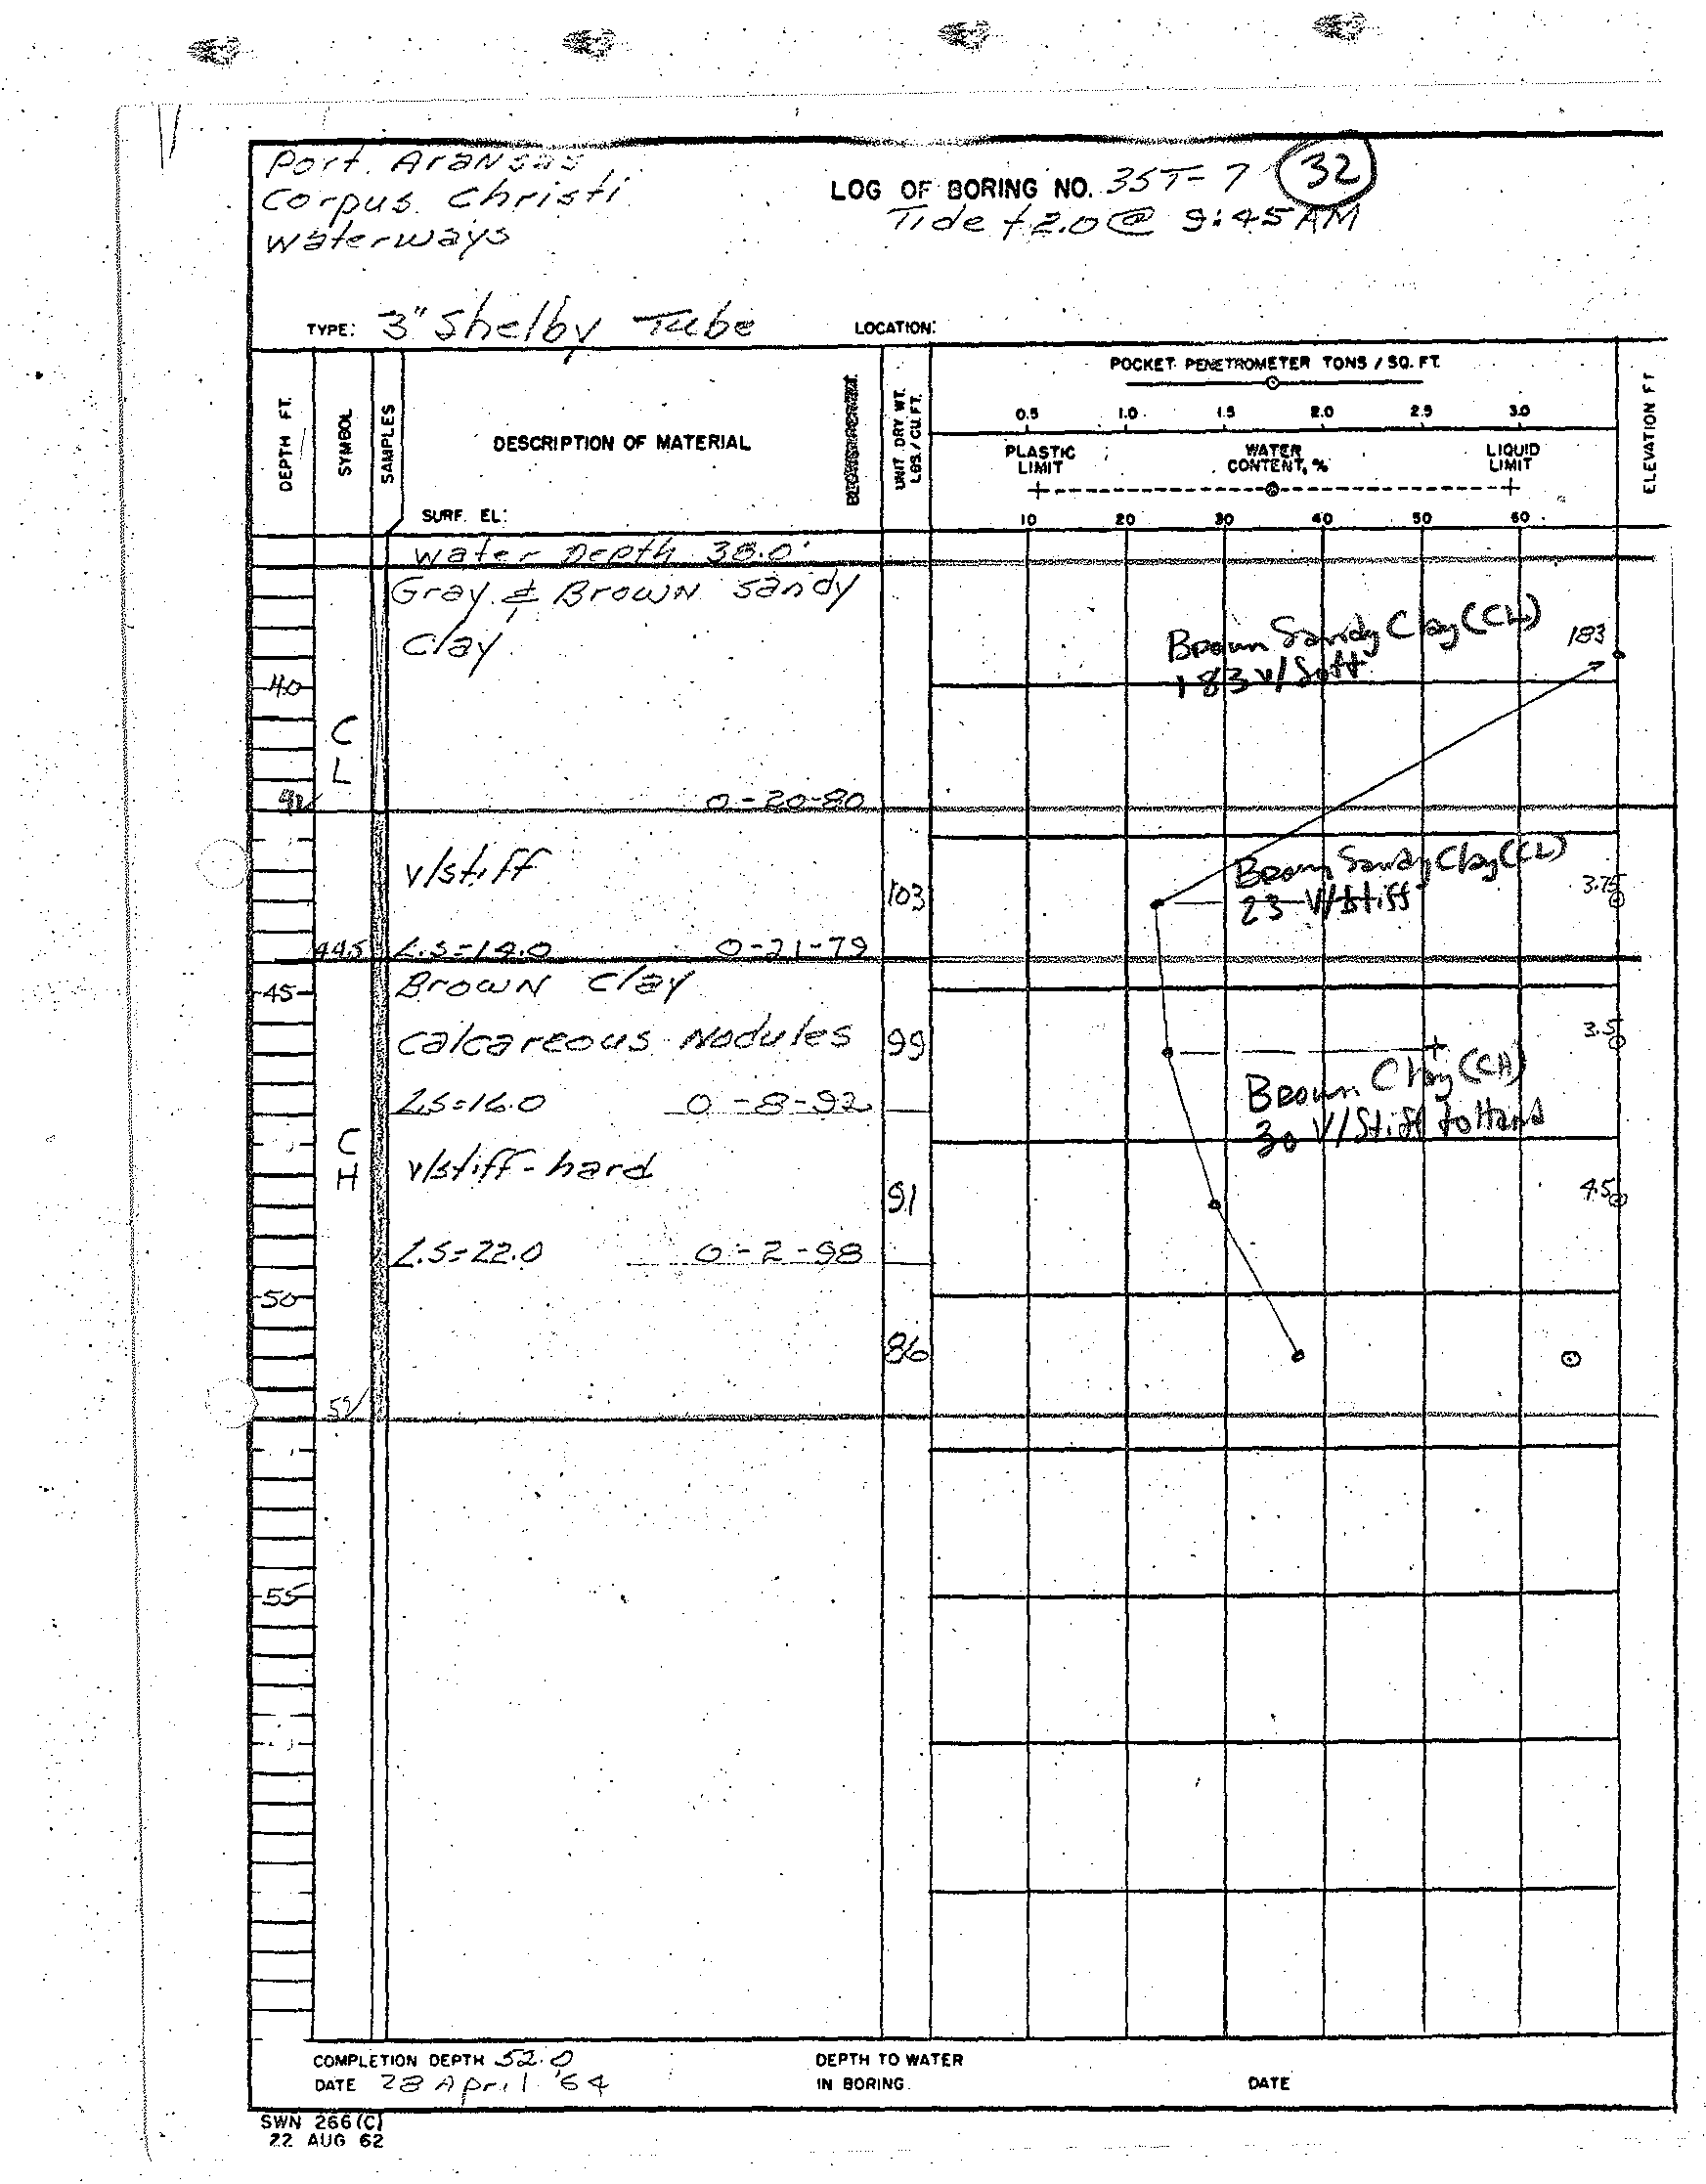 Port Aransas
Corpus Christi
Waterways
LOG OF BORING NO. 3ST-7 32
Tide +2.0 @ 9:45 AM
TYPE: 3" Shelby Tube
LOCATION:
DEPTH FT.
SYMBOL
SAMPLES
DESCRIPTION OF MATERIAL
SURF. EL:
UNIT DRY WT.
LBS. / CU. FT.
POCKET PENETROMETER TONS / SQ. FT.
0.5 1.0 1.5 2.0 2.5 3.0
PLASTIC LIMIT
WATER CONTENT, %
LIQUID LIMIT
10 20 30 40 50 60
ELEVATION FT
Water Depth 38.0'
Gray & Brown Sandy
Clay
Brown Sandy Clay (CL)
183 v/Soft
183
40
C
L
42
0-20-80
v/stiff
103
Brown Sandy Clay (CL)
23 V/stiff
3.75
44.5 L.S=14.0 0-21-79
Brown Clay
45
Calcareous Nodules 99
3.5
L.S=16.0 0-8-92
Brown Clay (CH)
30 V/Stiff to Hard
C
H
v/stiff-hard
91
4.5
L.S=22.0 0-2-98
50
86
52
55
COMPLETION DEPTH 52.0
DATE 28 April '64
DEPTH TO WATER
IN BORING.
DATE
SWN 266 (C)
22 AUG 62